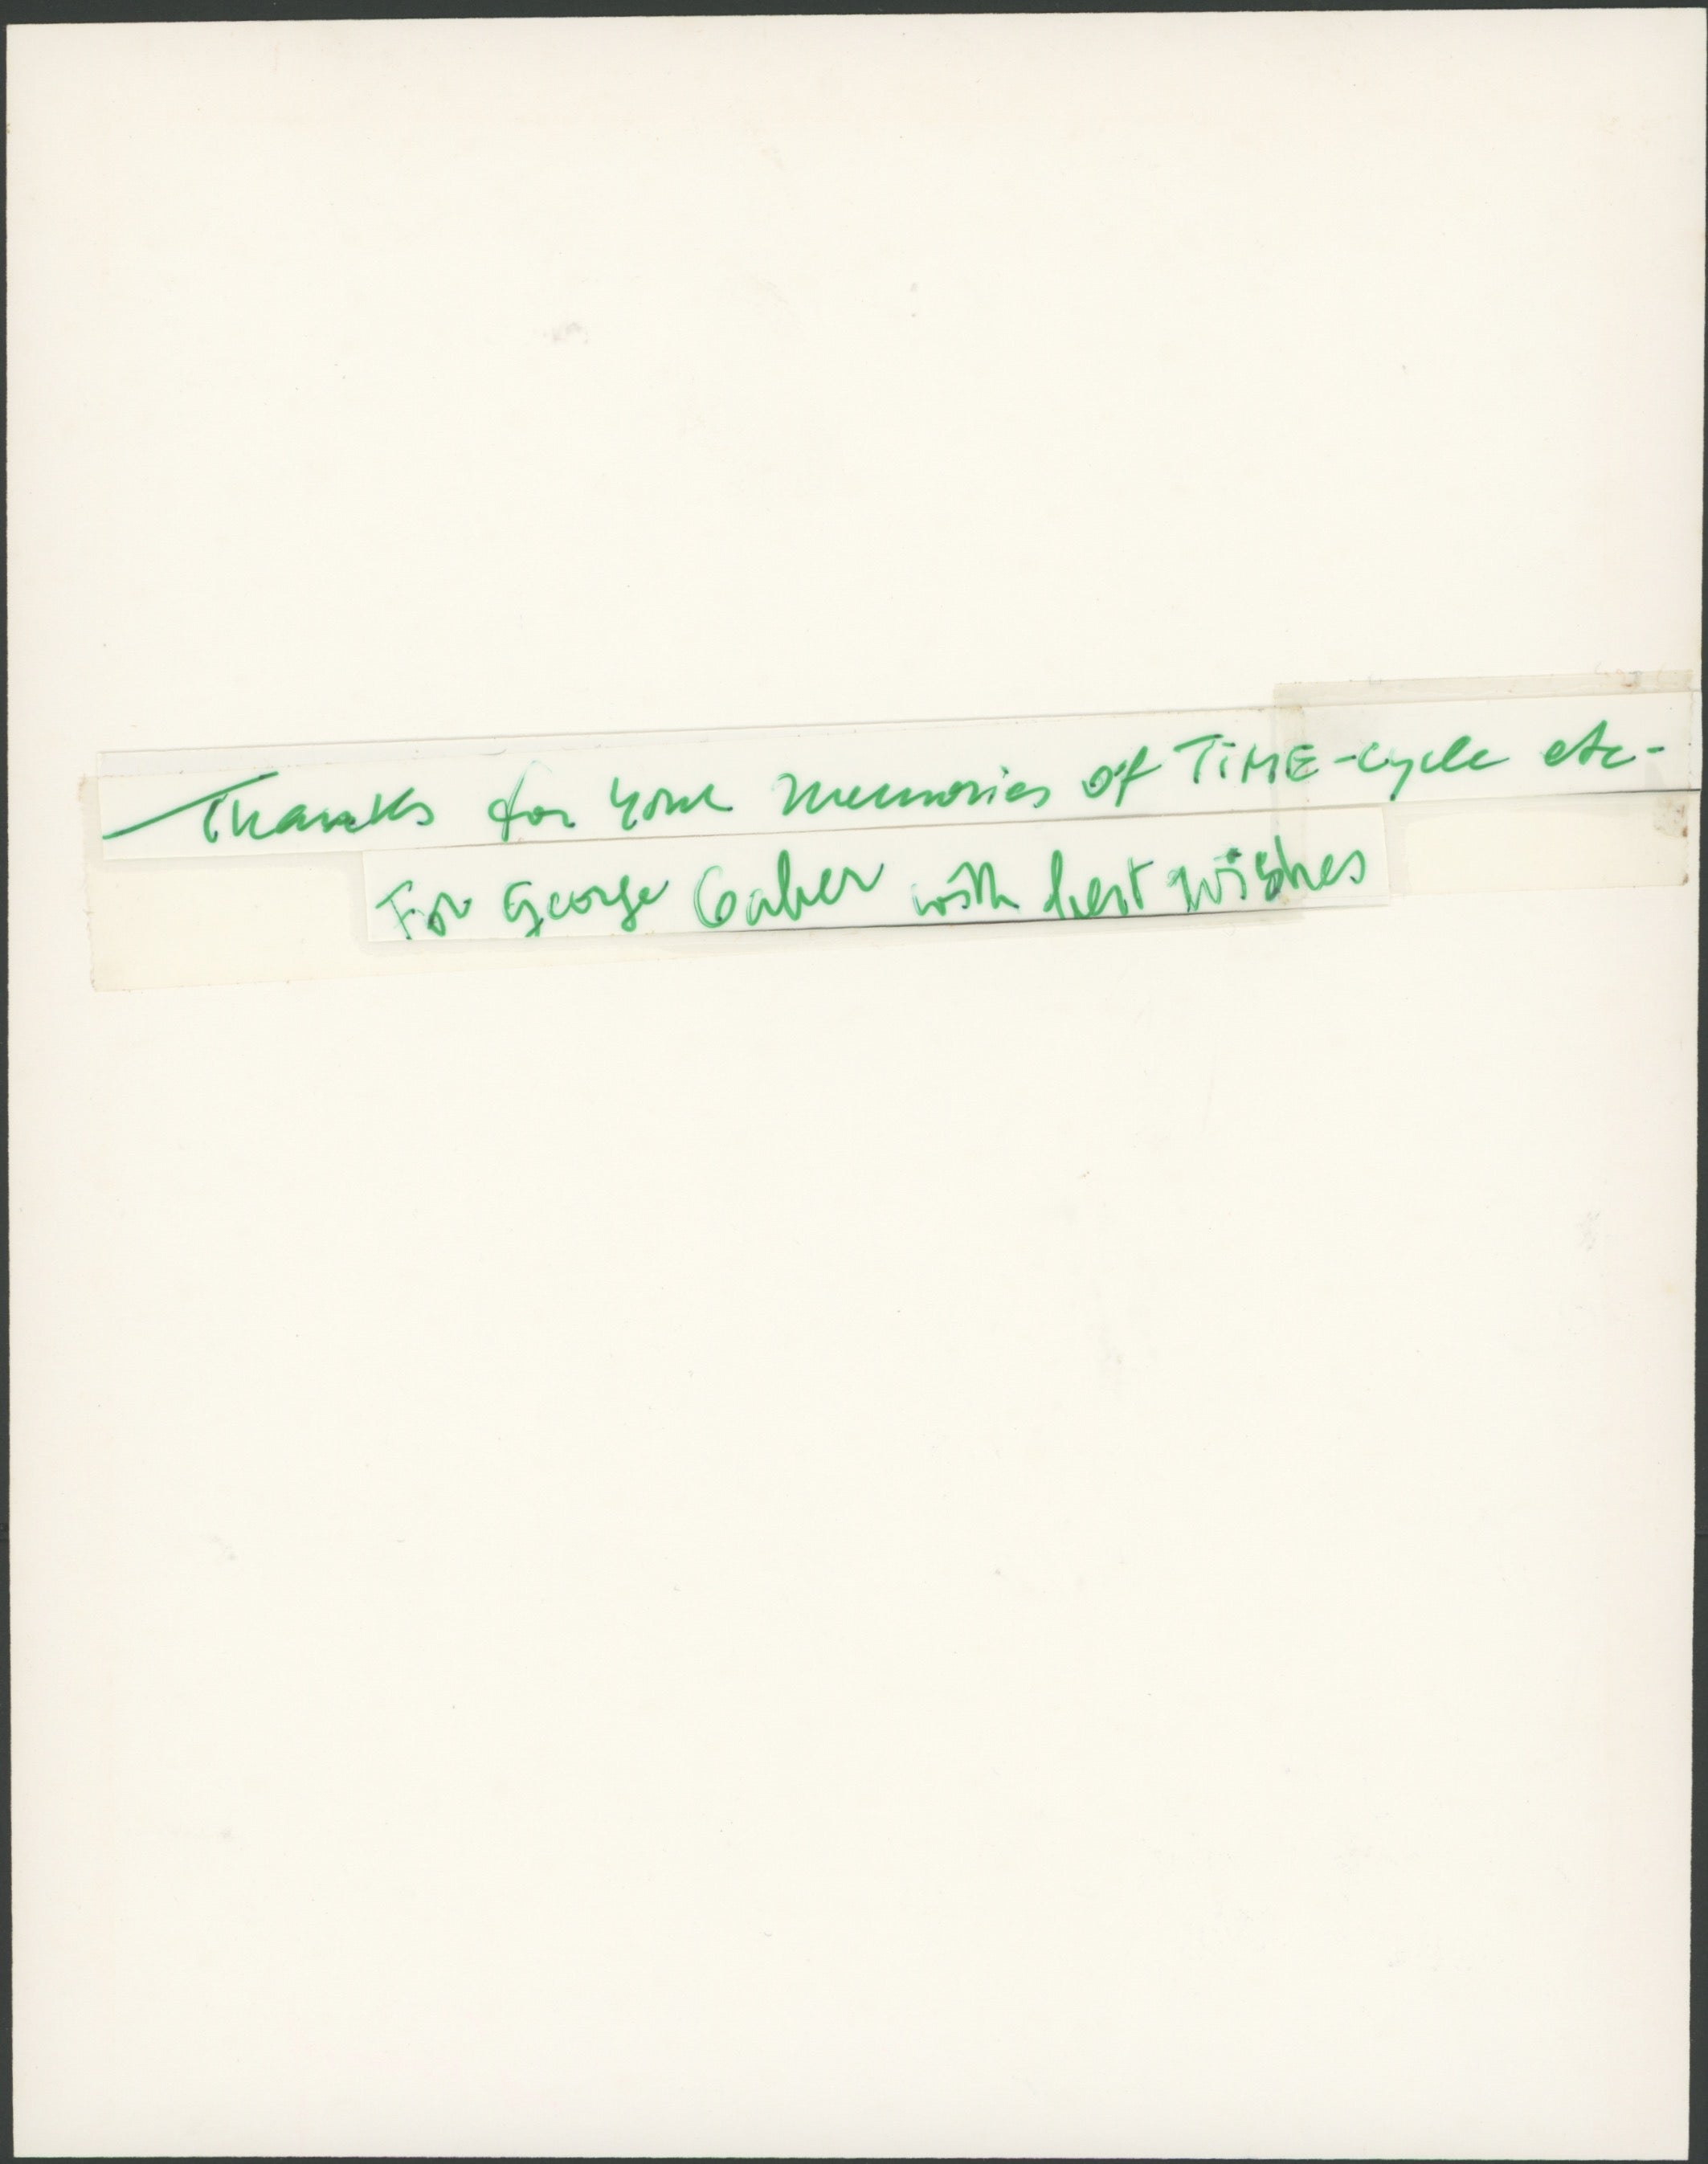 Thanks for your memories of TiME-cycle etc-
For George Gaber with best wishes